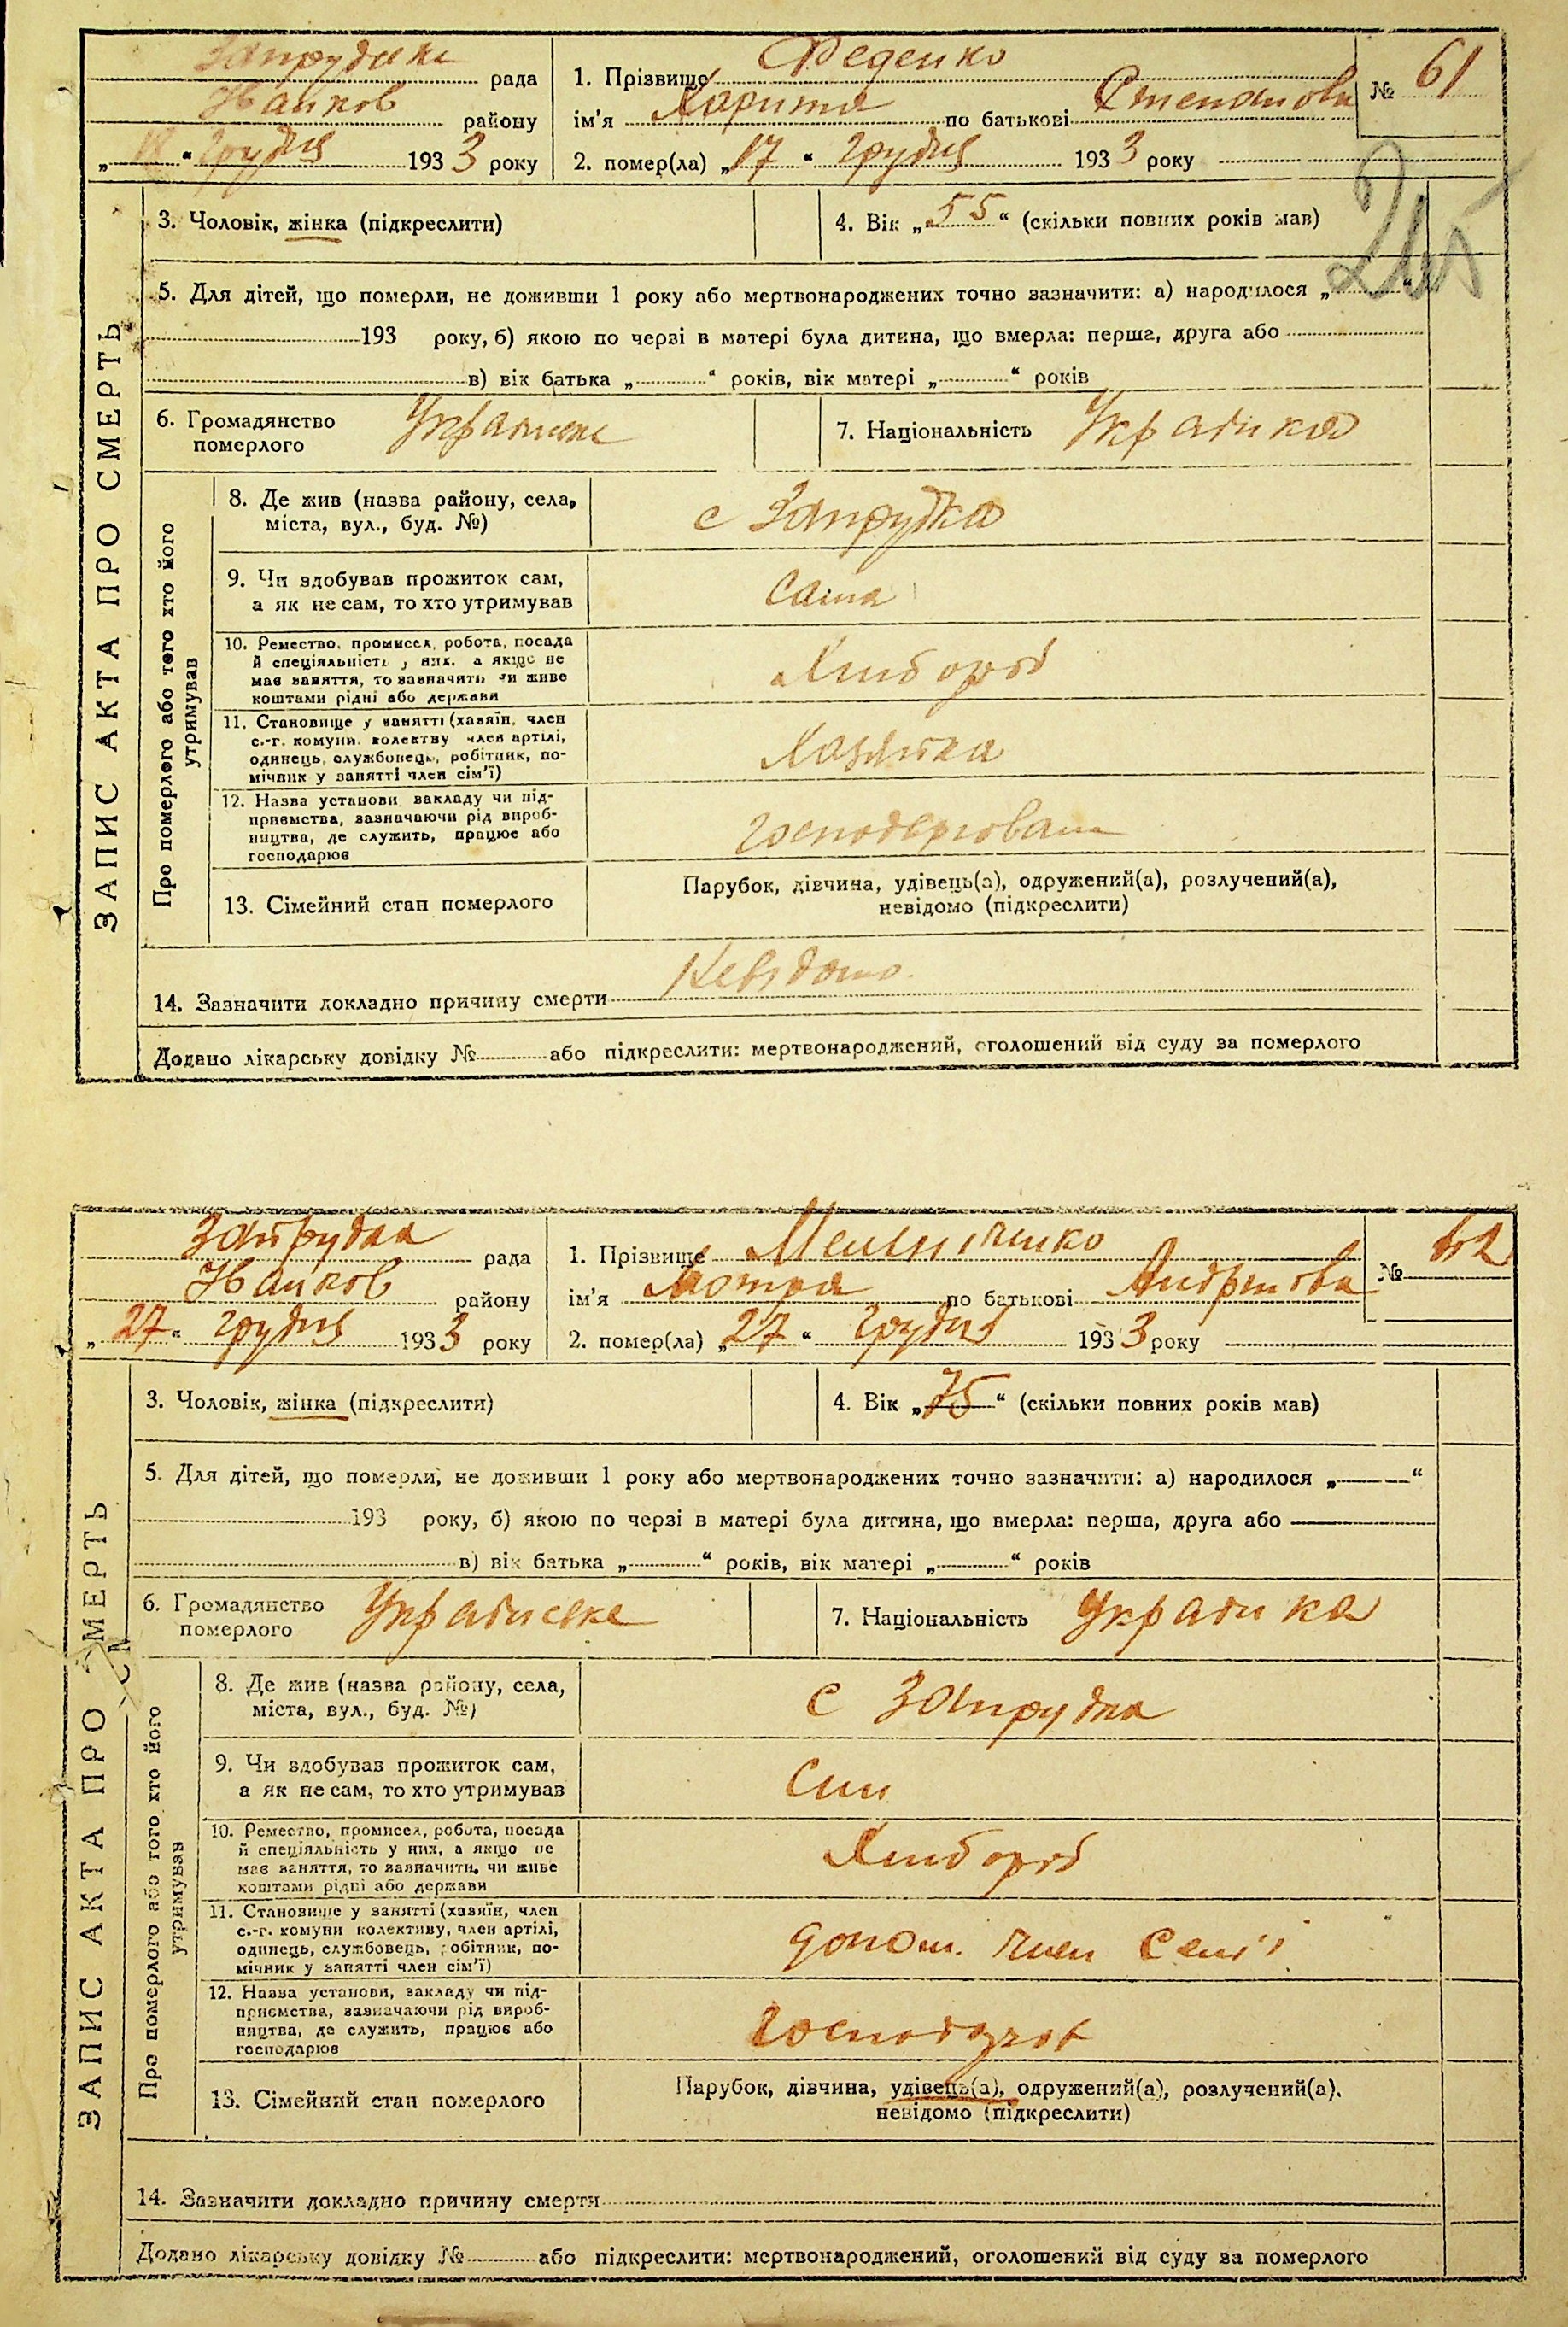 Запрудska рада
району
„18“ Грудня 1933 року
1. Прізвище Феденко
ім'я Харитя по батькові Степанова
№ 61
2. помер(ла) „17“ Грудня 1933 року
ЗАПИС АКТА ПРО СМЕРТЬ
3. Чоловік, жінка (підкреслити)
4. Вік „55“ (скільки повних років мав)
5. Для дітей, що померли, не доживши 1 року або мертвонароджених точно зазначити: а) народилося „
193 року, б) якою по черзі в матері була дитина, що вмерла: перша, друга або
в) вік батька „ “ років, вік матері „ “ років
6. Громадянство
померлого
7. Національність Українка
Про померлого або того хто його
утримував
8. Де жив (назва району, села,
міста, вул., буд. №)
с Запрудка
9. Чи здобував прожиток сам,
а як не сам, то хто утримував
Сама
10. Ремество, промисел, робота, посада
й спеціяльність у них, а якщо не
має заняття, то зазначити чи живе
коштами рідні або держави
Хлибороб
11. Становище у занятті (хазяїн, член
с.-г. комуни, колектву член артілі,
одинець, службовець, робітник, по-
мічник у занятті член сім'ї)
Хазяйка
12. Назва установи, закладу чи під-
приємства, зазначаючи рід вироб-
ництва, де служить, працює або
господарює
13. Сімейний стан померлого
Парубок, дівчина, удівець(а), одружений(а), розлучений(а),
невідомо (підкреслити)
14. Зазначити докладно причину смерти Невідомо.
Додано лікарську довідку № або підкреслити: мертвонароджений, оголошений від суду за померлого
Запрудка рада
району
„27“ Грудня 1933 року
1. Прізвище Мельниченко
ім'я Мотря по батькові Андріова
№ 62
2. помер(ла) „27“ Грудня 1933 року
ЗАПИС АКТА ПРО СМЕРТЬ
3. Чоловік, жінка (підкреслити)
4. Вік „75“ (скільки повних років мав)
5. Для дітей, що померли, не доживши 1 року або мертвонароджених точно зазначити: а) народилося „ “
193 року, б) якою по черзі в матері була дитина, що вмерла: перша, друга або
в) вік батька „ “ років, вік матері „ “ років
6. Громадянство
померлого
Українське
7. Національність Українка
Про померлого або того хто його
утримував
8. Де жив (назва району, села,
міста, вул., буд. №)
с Запрудка
9. Чи здобував прожиток сам,
а як не сам, то хто утримував
Син
10. Ремество, промисел, робота, посада
й спеціяльність у них, а якщо не
має заняття, то зазначити, чи живе
коштами рідні або держави
Хлибороб
11. Становище у занятті (хазяїн, член
с.-г. комуни колективу, член артілі,
одинець, службовець, робітник, по-
мічник у занятті член сім'ї)
допом. член Семї
12. Назва установи, закладу чи під-
приємства, зазначаючи рід вироб-
ництва, де служить, працює або
господарює
13. Сімейний стан померлого
Парубок, дівчина, удівець(а), одружений(а), розлучений(а),
невідомо (підкреслити)
14. Зазначити докладно причину смерти
Додано лікарську довідку № або підкреслити: мертвонароджений, оголошений від суду за померлого